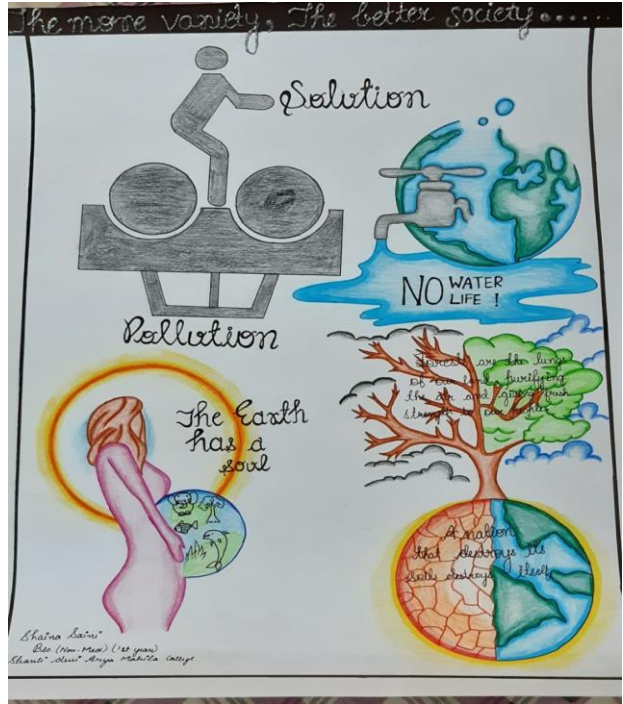 The more variety, The better society......
Solution
NO WATER
LIFE !
Pollution
Forests are the lungs
of our land, purifying
the air and giving fresh
strength to our
The Earth
has a
soul
A nation
that destroys its
soils destroys itself
Shaina Saini
Bsc (Non-Med) (1st year)
Shanti Devi Arya Mahila College